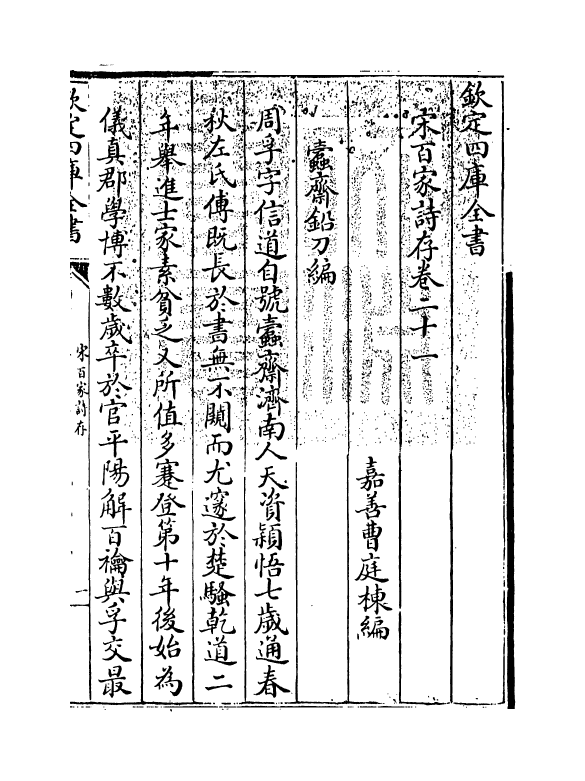 欽定四庫全書
宋百家詩存卷二十一
嘉善曹庭棟編
蠧齋鉛刀編
周孚字信道自號蠧齋濟南人天資穎悟七歲通春
秋左氏傳既長於書無不闚而尤邃於楚騷乾道二
年舉進士家素貧乏又所值多蹇登第十年後始為
儀真郡學博不數歲卒於官平陽解百禴與孚交最
欽定四庫全書
宋百家詩存
一